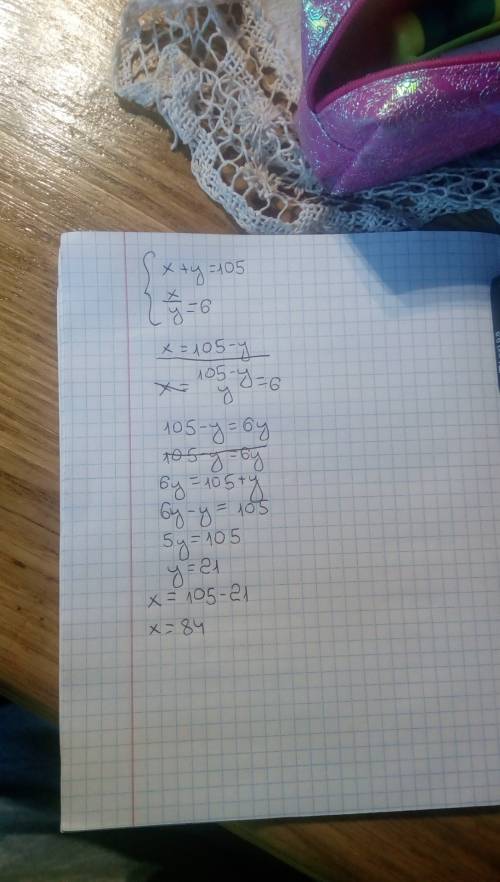 x+y=105
x/y=6
x=105-y
x= 105-y/y=6
105-y=6y
105-y=6y
6y=105+y
6y-y= 105
5y=105
y=21
x= 105-21
x= 84